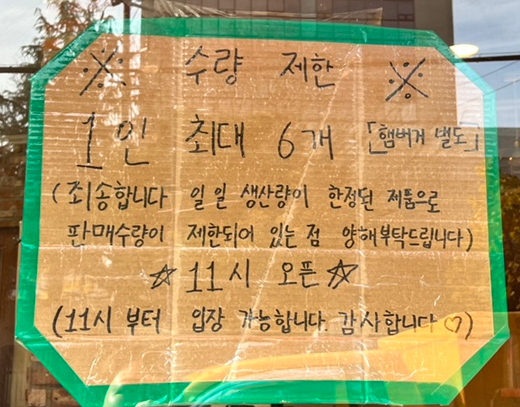 ※ 수량 제한 ※
1인 최대 6개 [햄버거 별도]
(죄송합니다 일일 생산량이 한정된 제품으로
판매수량이 제한되어 있는 점 양해부탁드립니다)
☆11시 오픈☆
(11시 부터 입장 가능합니다. 감사합니다♡)